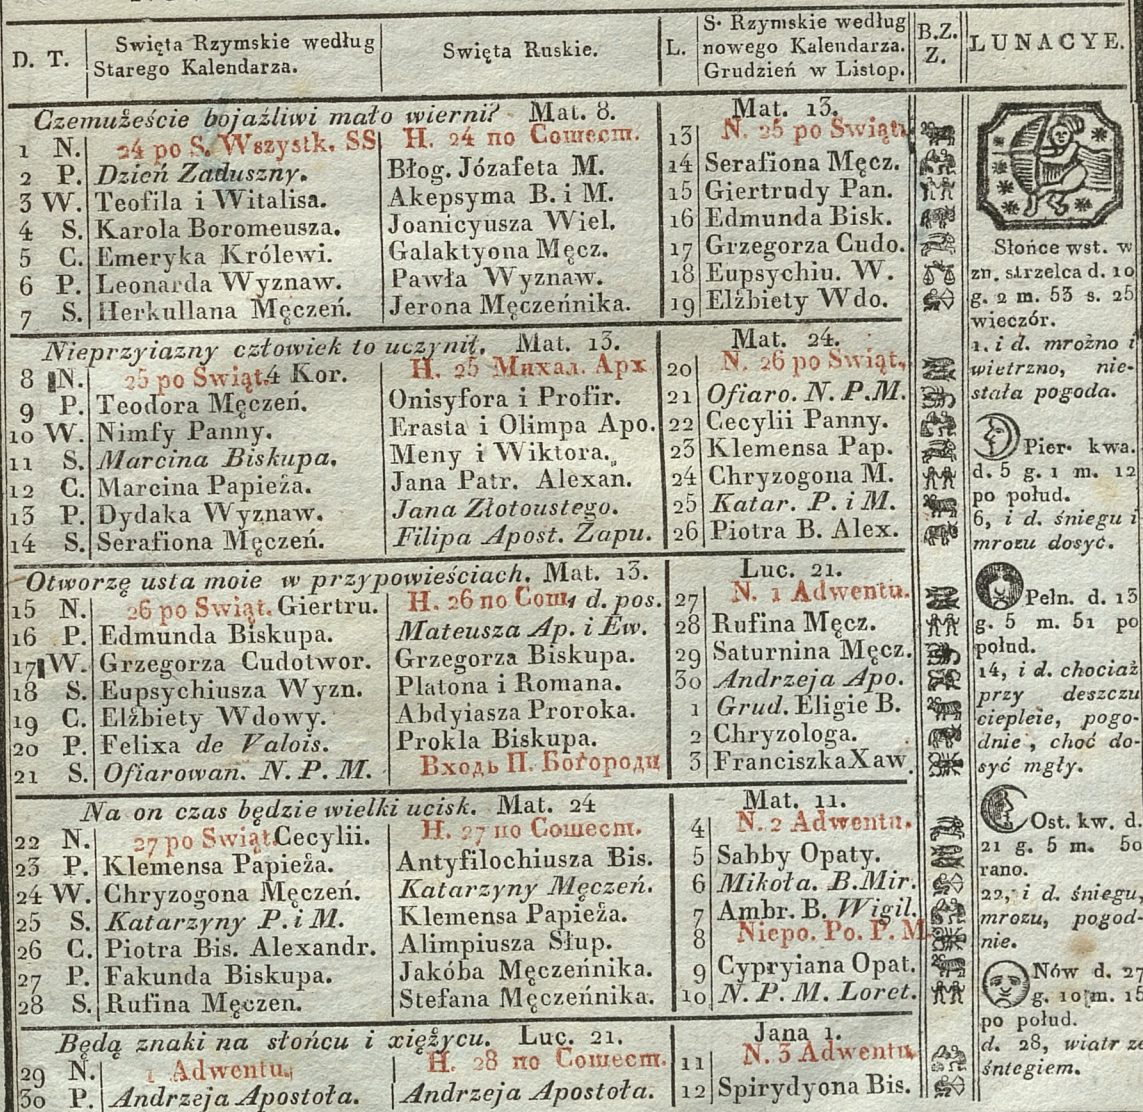 D. T. Swięta Rzymskie według Starego Kalendarza. Swięta Ruskie. L. S. Rzymskie według nowego Kalendarza. Grudzień w Listop. B.Z. Z. LUNACYE.
Czemużeście bojaźliwi mało wierni? Mat. 8. Mat. 13.
1 N. 24 po S. Wszystk. SS H. 24 по Сошест. 13 N. 25 po Swiąt.
2 P. Dzień Zaduszny. Błog. Józafeta M. 14 Serafiona Męcz.
3 W. Teofila i Witalisa. Akepsyma B. i M. 15 Giertrudy Pan.
4 S. Karola Boromeusza. Joanicyusza Wiel. 16 Edmunda Bisk.
5 C. Emeryka Królewi. Galaktyona Męcz. 17 Grzegorza Cudo.
6 P. Leonarda Wyznaw. Pawła Wyznaw. 18 Eupsychiu. W.
7 S. Herkullana Męczeń. Jerona Męczeńnika. 19 Elżbiety Wdo.
Nieprzyiazny człowiek to uczynił. Mat. 13. Mat. 24.
8 N. 25 po Swiąt. 4 Kor. H. 25 Михал. Арх 20 N. 26 po Swiąt.
9 P. Teodora Męczeń. Onisyfora i Profir. 21 Ofiaro. N. P. M.
10 W. Nimfy Panny. Erasta i Olimpa Apo. 22 Cecylii Panny.
11 S. Marcina Biskupa. Meny i Wiktora. 23 Klemensa Pap.
12 C. Marcina Papieża. Jana Patr. Alexan. 24 Chryzogona M.
13 P. Dydaka Wyznaw. Jana Złotoustego. 25 Katar. P. i M.
14 S. Serafiona Męczeń. Filipa Apost. Zapu. 26 Piotra B. Alex.
Otworzę usta moie w przypowieściach. Mat. 13. Luc. 21.
15 N. 26 po Swiąt. Giertru. H. 26 по Сош. 1 d. pos. 27 N. 1 Adwentu.
16 P. Edmunda Biskupa. Mateusza Ap. i Ew. 28 Rufina Męcz.
17 W. Grzegorza Cudotwor. Grzegorza Biskupa. 29 Saturnina Męcz.
18 S. Eupsychiusza Wyzn. Platona i Romana. 30 Andrzeja Apo.
19 C. Elżbiety Wdowy. Abdyiasza Proroka. 1 Grud. Eligie B.
20 P. Felixa de Valois. Prokla Biskupa. 2 Chryzologa.
21 S. Ofiarowan. N. P. M. Входь П. Богороди 3 Franciszka Xaw.
Na on czas będzie wielki ucisk. Mat. 24 Mat. 11.
22 N. 27 po Swiąt. Cecylii. H. 27 по Сошест. 4 N. 2 Adwentu.
23 P. Klemensa Papieża. Antyfilochiusza Bis. 5 Sabby Opaty.
24 W. Chryzogona Męczeń. Katarzyny Męczeń. 6 Mikoła. B. Mir.
25 S. Katarzyny P. i M. Klemensa Papieża. 7 Ambr. B. Wigil.
26 C. Piotra Bis. Alexandr. Alimpiusza Słup. 8 Niepo. Po. P. M
27 P. Fakunda Biskupa. Jakóba Męczeńnika. 9 Cypryiana Opat.
28 S. Rufina Męczen. Stefana Męczeńnika. 10 N. P. M. Loret.
Będą znaki na słońcu i xiężycu. Luc. 21. Jana 1.
29 N. 1 Adwentu. H. 28 по Сошест. 11 N. 3 Adwentu
30 P. Andrzeja Apostoła. Andrzeja Apostoła. 12 Spirydyona Bis.
Słońce wst. w
zn. strzelca d. 10
g. 2 m. 53 s. 25
wieczór.
1. i d. mroźno i
wietrzno, nie-
stała pogoda.
Pier. kwa.
d. 5 g. 1 m. 12
po połud.
6, i d. śniegu i
mrozu dosyć.
Pełn. d. 13
g. 5 m. 51 po
połud.
14, i d. chociaż
przy deszczu
ciepleie, pogo-
dnie, choć do-
syć mgły.
Ost. kw. d.
21 g. 5 m. 50
rano.
22, i d. śniegu,
mrozu, pogod-
nie.
Nów d. 27
g. 10 m. 15
po połud.
d. 28, wiatr ze
śniegiem.